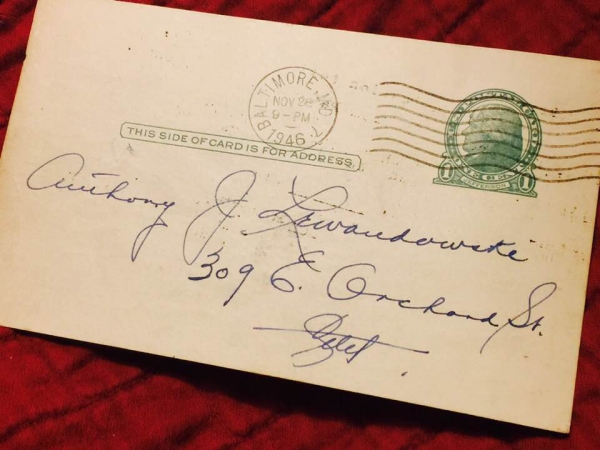 BALTIMORE, MD.
NOV
9-PM
1946
7
THIS SIDE OF CARD IS FOR ADDRESS
1 1
JEFFERSON
Anthony J. Lewandowski
309 E. Orchard St.